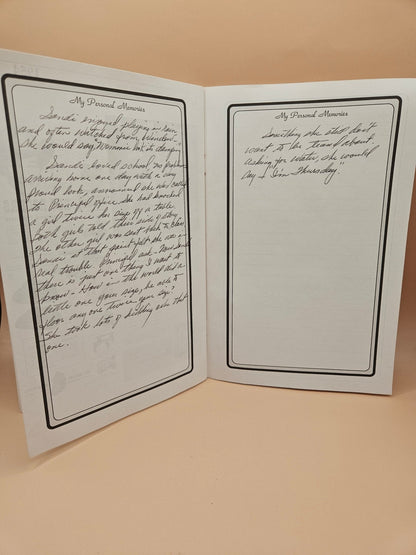 My Personal Memories
Sandi enjoyed playing in rain
and often watched from window
she would say "Mommie look its
Sandi loved school no problems
arriving home one day with a very
proud look, announced she was called
to Principal office. She had knocked
a girl twice her size off a table
Both girls told their side of story
the other girl was sent back to class
Sandi at that point felt she was in
real trouble. Principal ask. Now Sandi
there is just one thing I want to
know - How in the world did a
little one your size, be able to
floor any one twice your size?
She took lots of kidding over that
one.
My Personal Memories
Something she still don't
want to be teased about.
Asking for water, she would
say "I Im Thursday."